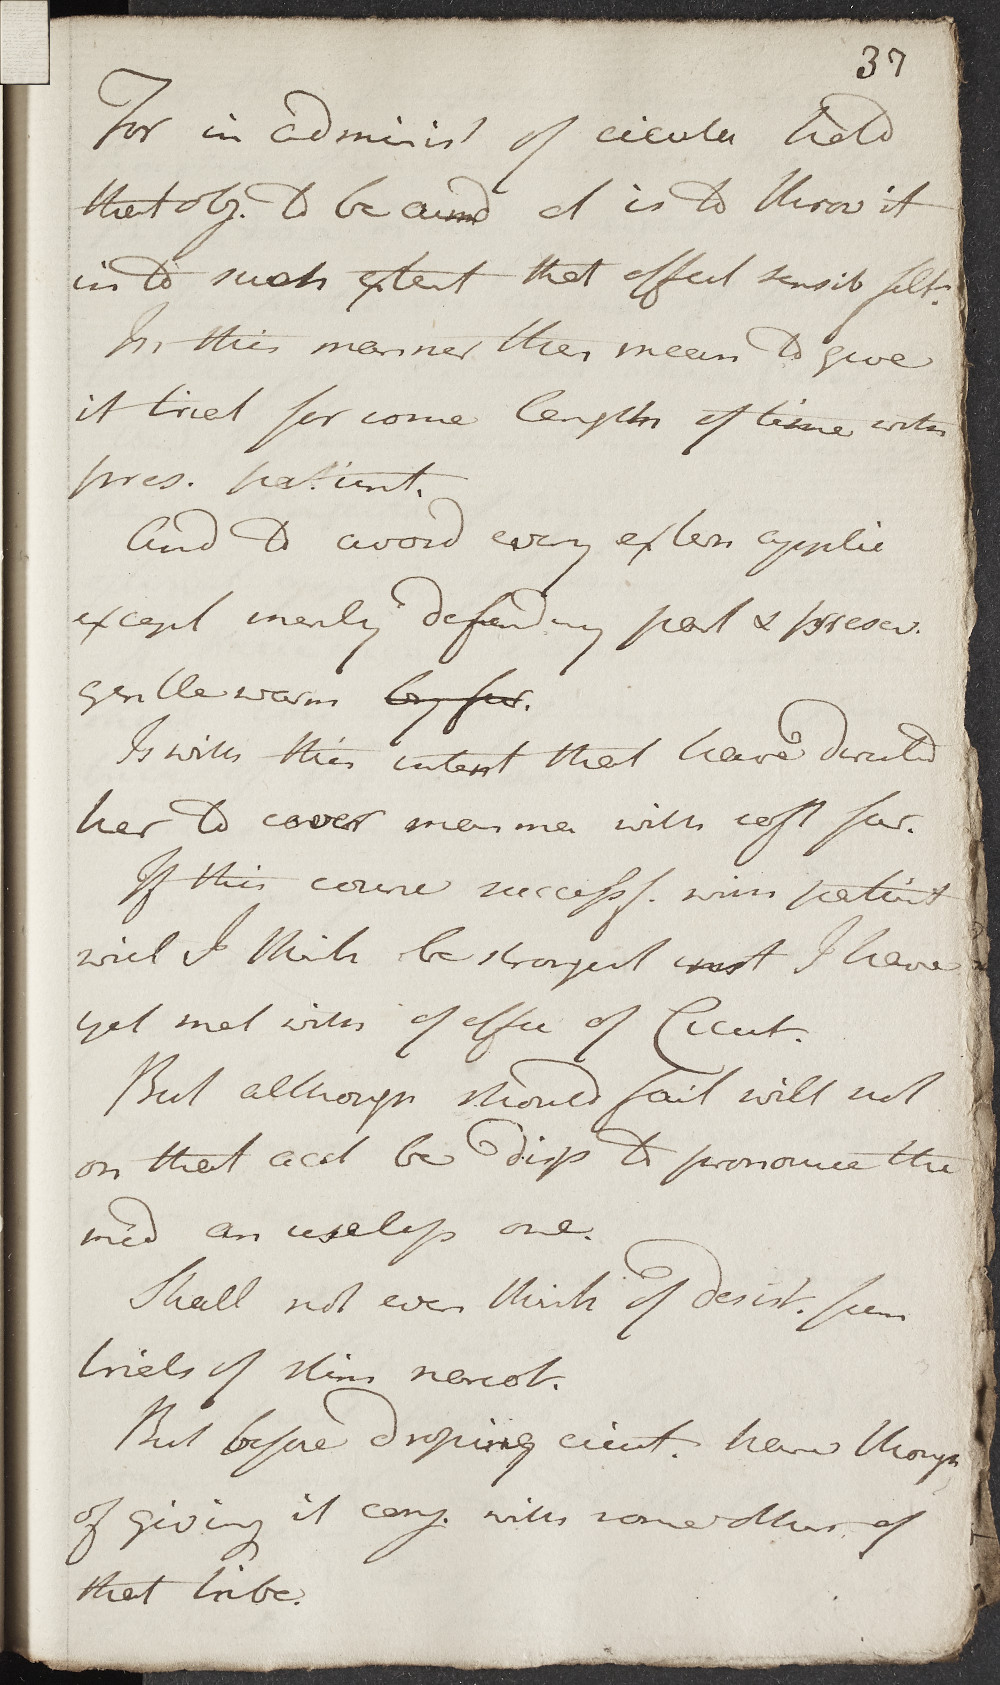 37
For in administ of cicuta held
that obj. to be aimd at is to throw it
in to such extent that effect sensib felt.
In this manner then mean to give
it trial for some length of time with
pres. patient.
And to avoid every extern applic
except merely defending part & preserv.
gentle warm by fur.
Is with this intent that have directd
her to cover mamma with soft fur.
If this course successf. with patient
will I think be strongest inst I have
yet met with of effec of Cicut.
But although should fail will not
on that acct be disp to pronounce the
med an useless one.
Shall not even think of desist. from
trials of stim narcot.
But before droping cicut. have though
of giving it conj. with some other of
that tribe.